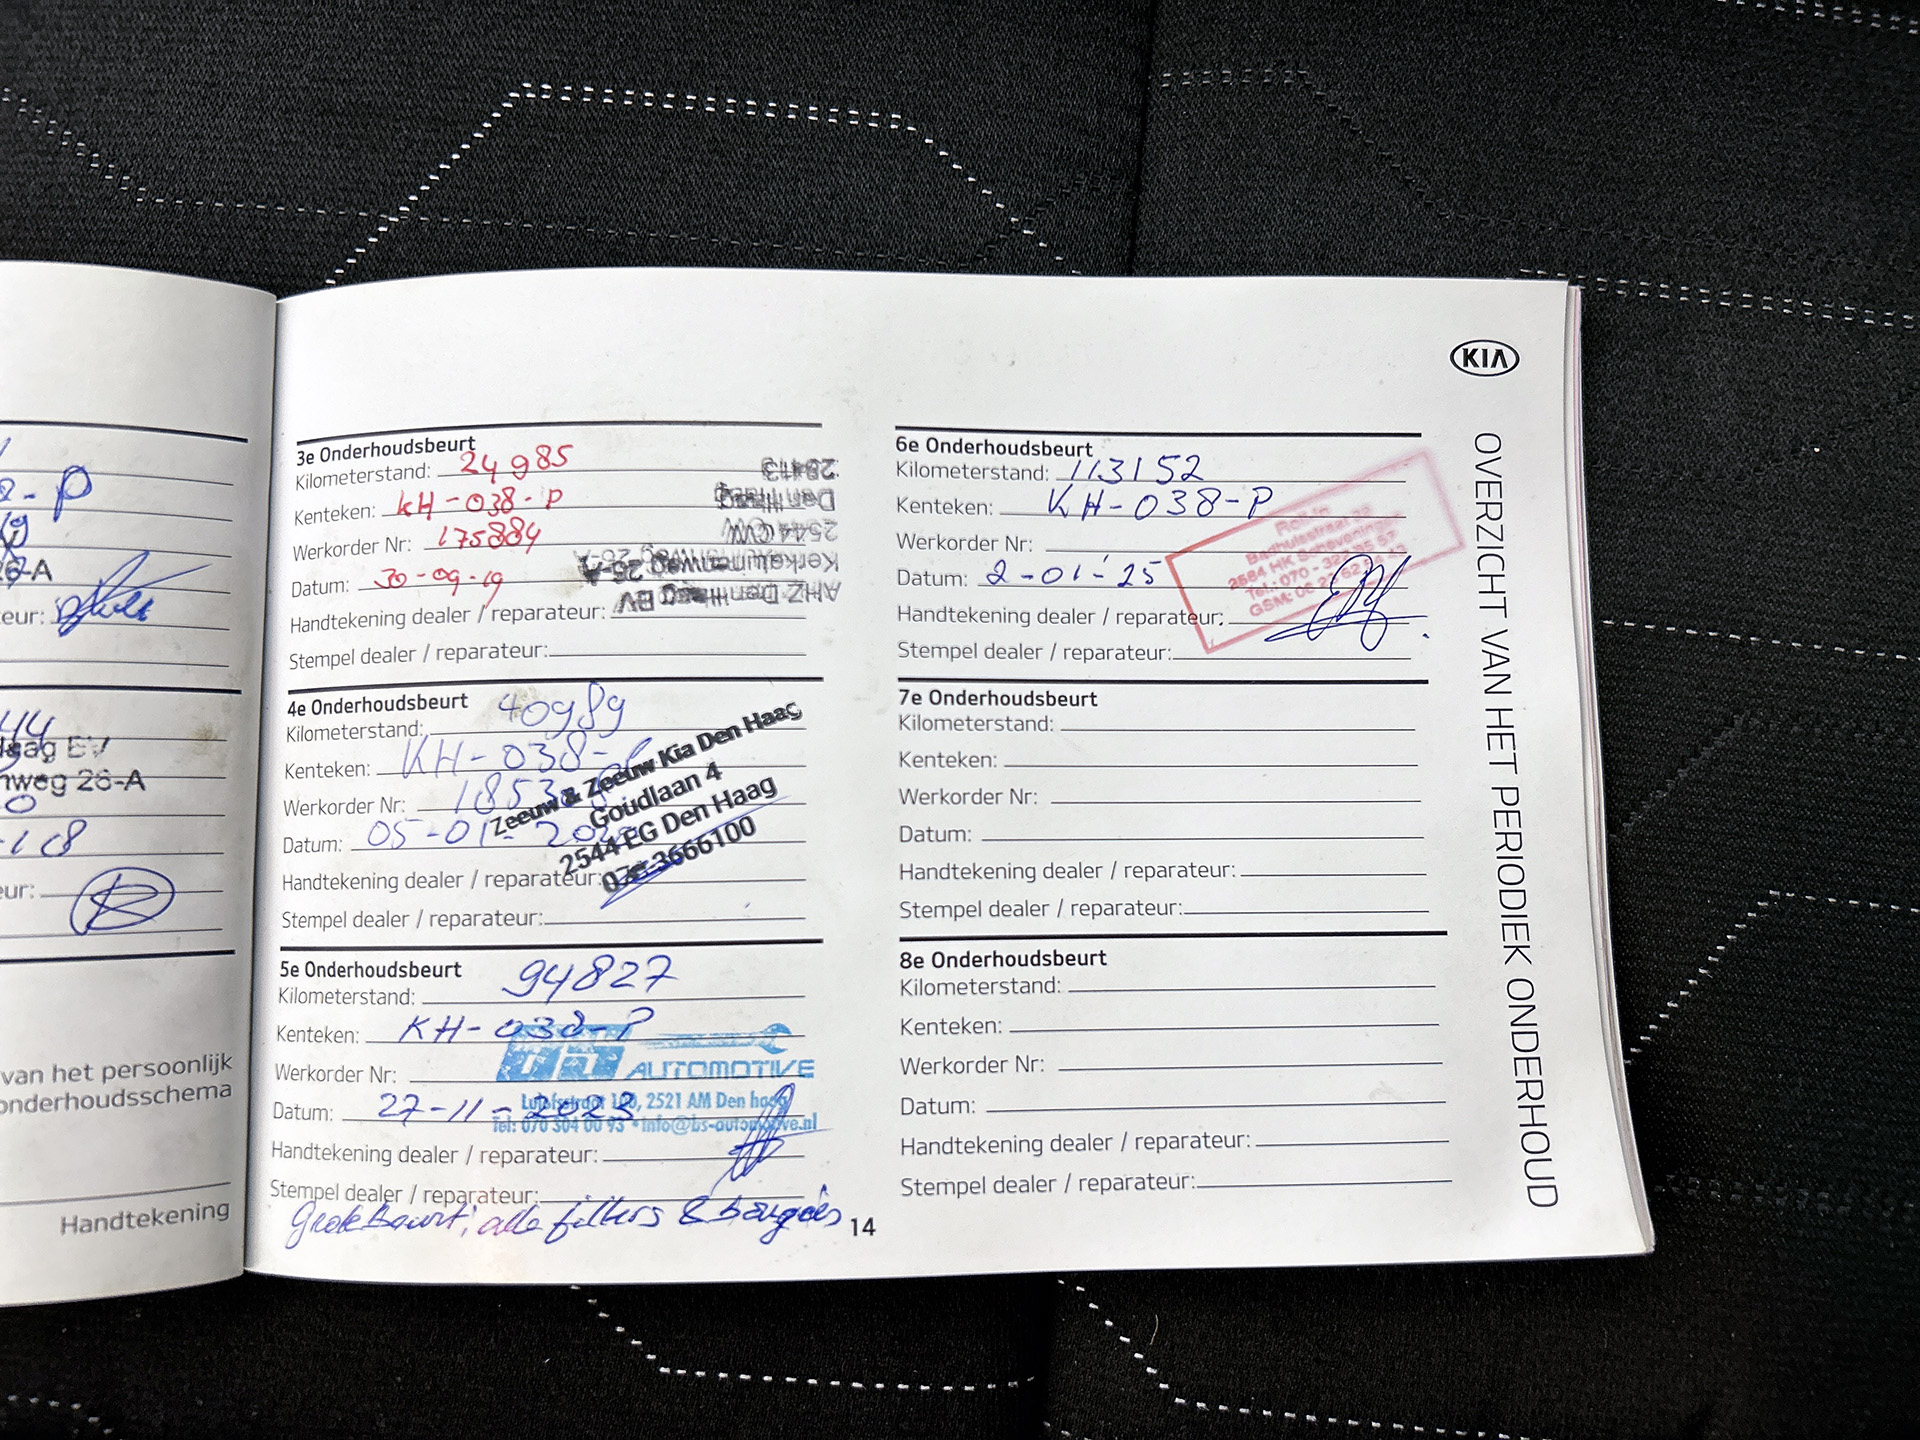 -P
-A
eur:
44
Haag BV
nweg 26-A
0
-18
eur:
van het persoonlijk
onderhoudsschema
Handtekening
KIA
OVERZICHT VAN HET PERIODIEK ONDERHOUD
3e Onderhoudsbeurt
Kilometerstand: 24985
Kenteken: KH-038-P
Werkorder Nr: 175884
Datum: 30-09-19
Handtekening dealer / reparateur:
Stempel dealer / reparateur:
AHZ Den Haag BV
Kerketuinenweg 26-A
2544 CW
Den Haag
28413
4e Onderhoudsbeurt
Kilometerstand: 40989
Kenteken: KH-038-P
Werkorder Nr:
Datum: 05-01-
Handtekening dealer / reparateur:
Stempel dealer / reparateur:
Zeeuw & Zeeuw Kia Den Haag
Goudlaan 4
2544 EG Den Haag
070-3666100
5e Onderhoudsbeurt
Kilometerstand: 94827
Kenteken: KH-038-P
Werkorder Nr:
Datum: 27-11-2023
Handtekening dealer / reparateur:
Stempel dealer / reparateur:
AUTOMOTIVE
2521 AM Den haag
Tel: 070 304 00 93 • info@bs-automotive.nl
Grote Beurt; alle filters & bougies
14
6e Onderhoudsbeurt
Kilometerstand: 113152
Kenteken: KH-038-P
Werkorder Nr:
Datum: 2-01-'25
Handtekening dealer / reparateur:
Stempel dealer / reparateur:
Badhuisstraat
2584 HK Scheveningen
Tel.: 070 -
GSM: 06
7e Onderhoudsbeurt
Kilometerstand:
Kenteken:
Werkorder Nr:
Datum:
Handtekening dealer / reparateur:
Stempel dealer / reparateur:
8e Onderhoudsbeurt
Kilometerstand:
Kenteken:
Werkorder Nr:
Datum:
Handtekening dealer / reparateur:
Stempel dealer / reparateur: